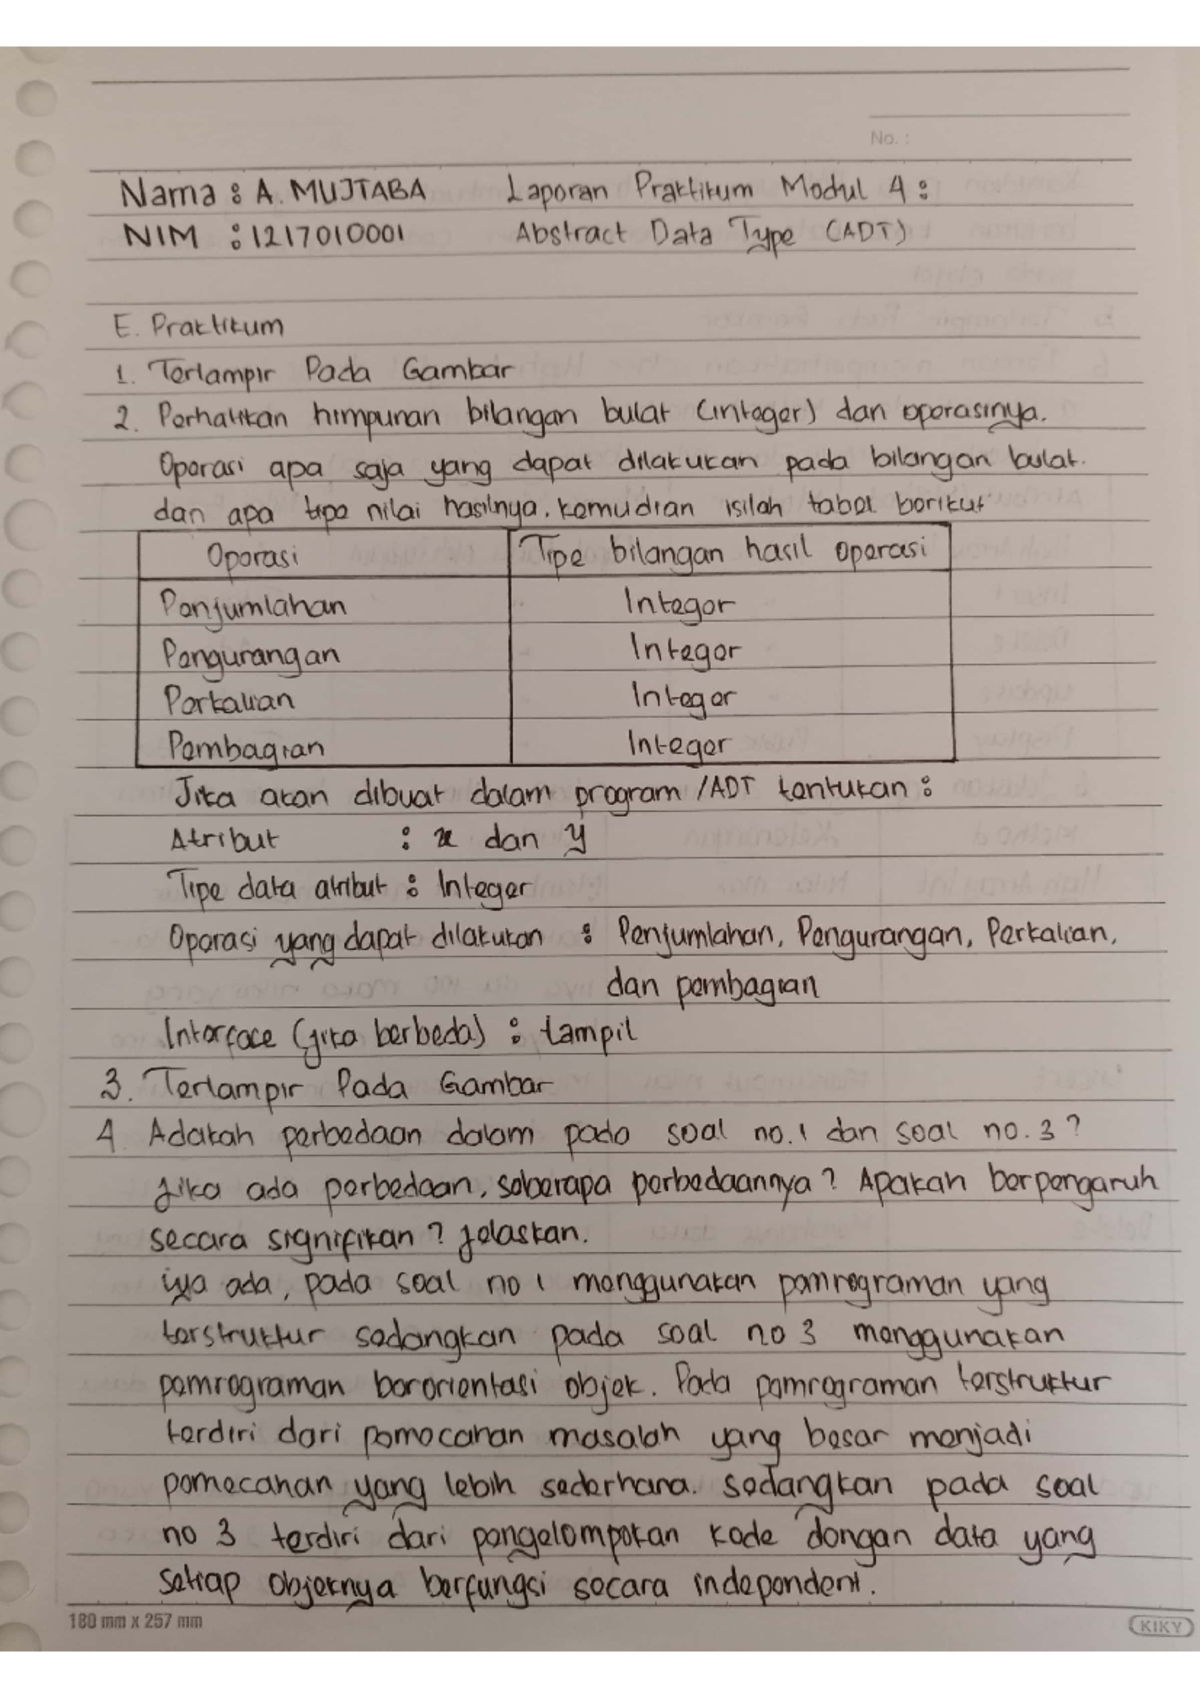 No. :
Nama : A. MUJTABA Laporan Praktikum Modul 4 :
NIM : 1217010001 Abstract Data Type (ADT)
E. Praktikum
1. Terlampir Pada Gambar
2. Perhatikan himpunan bilangan bulat (integer) dan operasinya.
Operasi apa saja yang dapat dilakukan pada bilangan bulat.
dan apa tipe nilai hasilnya. kemudian isilah tabel berikut
Operasi Tipe bilangan hasil operasi
Penjumlahan Integer
Pengurangan Integer
Perkalian Integer
Pembagian Integer
Jika akan dibuat dalam program /ADT tentukan :
Atribut : x dan y
Tipe data atribut : Integer
Operasi yang dapat dilakukan : Penjumlahan, Pengurangan, Perkalian,
dan pembagian
Interface (jika berbeda) : tampil
3. Terlampir Pada Gambar
4 Adakah perbedaan dalam pada soal no.1 dan soal no.3?
Jika ada perbedaan, seberapa perbedaannya? Apakah berpengaruh
secara signifikan? jelaskan.
iya ada, pada soal no 1 menggunakan pemrograman yang
terstruktur sedangkan pada soal no 3 menggunakan
pemrograman berorientasi objek. Pada pemrograman terstruktur
terdiri dari pemecahan masalah yang besar menjadi
pemecahan yang lebih sederhana. sedangkan pada soal
no 3 terdiri dari pengelompokan kode dengan data yang
setiap objeknya berfungsi secara independent.
180 mm x 257 mm
KIKY